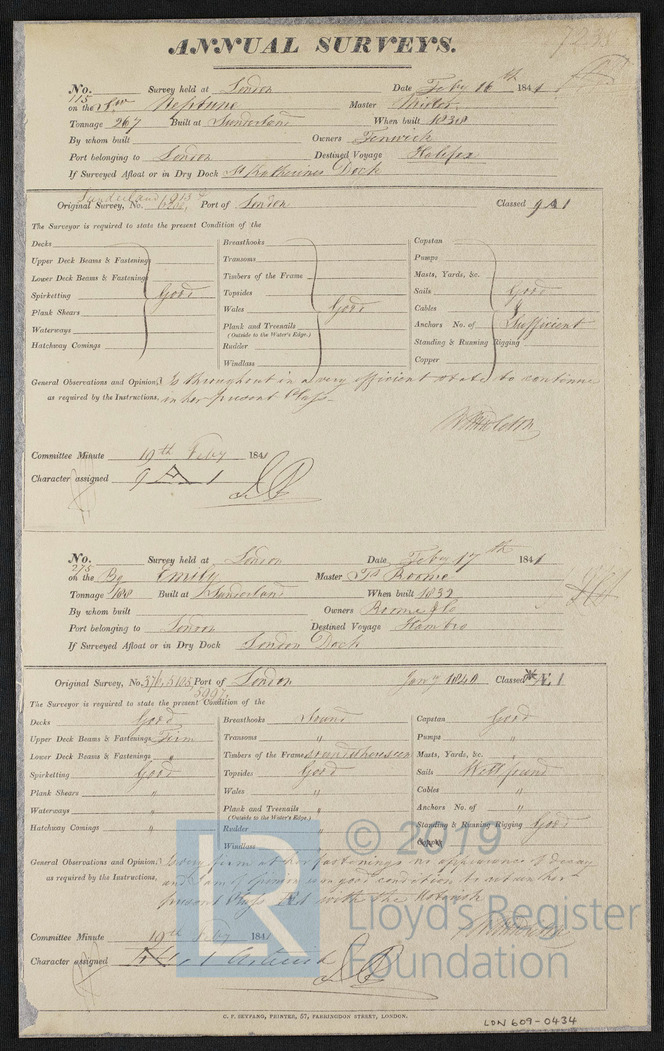 ANNUAL SURVEYS.
7233
No. 115 Survey held at London Date Feby 16th 1841
on the Neptune Master
Tonnage 267 Built at Sunderland When built 1838
By whom built Owners Fenwick
Port belonging to London Destined Voyage Halifax
If Surveyed Afloat or in Dry Dock St Katherines Dock
Original Survey, No. Sunderland Port of London Classed 9 A 1
The Surveyor is required to state the present Condition of the
Decks
Upper Deck Beams & Fastenings
Lower Deck Beams & Fastenings
Spirketting Good
Plank Shears
Waterways
Hatchway Comings
Breasthooks
Transoms
Timbers of the Frame
Topsides
Wales Good
Plank and Treenails
(Outside to the Water's Edge.)
Rudder
Windlass
Capstan
Pumps
Masts, Yards, &c.
Sails Good
Cables &
Anchors No. of Sufficient
Standing & Running Rigging
Copper
General Observations and Opinion, Is throughout in a very efficient state to continue
as required by the Instructions, in her present Class
Committee Minute 19th Feby 1841
Character assigned 9 A 1
No. 275 Survey held at London Date Feby 17th 1841
on the Bg Emily Master Roome
Tonnage 188 Built at Sunderland When built 1832
By whom built Owners Roome & Co
Port belonging to London Destined Voyage Hambro
If Surveyed Afloat or in Dry Dock London Dock
Original Survey, No. Port of London Jany 7 1840 Classed *Æ 1
The Surveyor is required to state the present Condition of the
Decks Good
Upper Deck Beams & Fastenings Firm
Lower Deck Beams & Fastenings "
Spirketting Good
Plank Shears "
Waterways "
Hatchway Comings "
Breasthooks Sound
Transoms "
Timbers of the Frame
Topsides Good
Wales "
Plank and Treenails "
(Outside to the Water's Edge.)
Rudder "
Windlass "
Capstan Good
Pumps "
Masts, Yards, &c. "
Sails Well found
Cables "
Anchors No. of "
Standing & Running Rigging Good
General Observations and Opinion, Is very firm at her fastenings no appearance of decay
as required by the Instructions, and I am of opinion is in good condition to retain her
present Class Æ 1 with the
Committee Minute 19th Feby 1841
Character assigned
© 2019
Lloyd's Register
Foundation
C. F. SEYFANG, PRINTER, 57, FARRINGDON STREET, LONDON.
LDN 609-0434